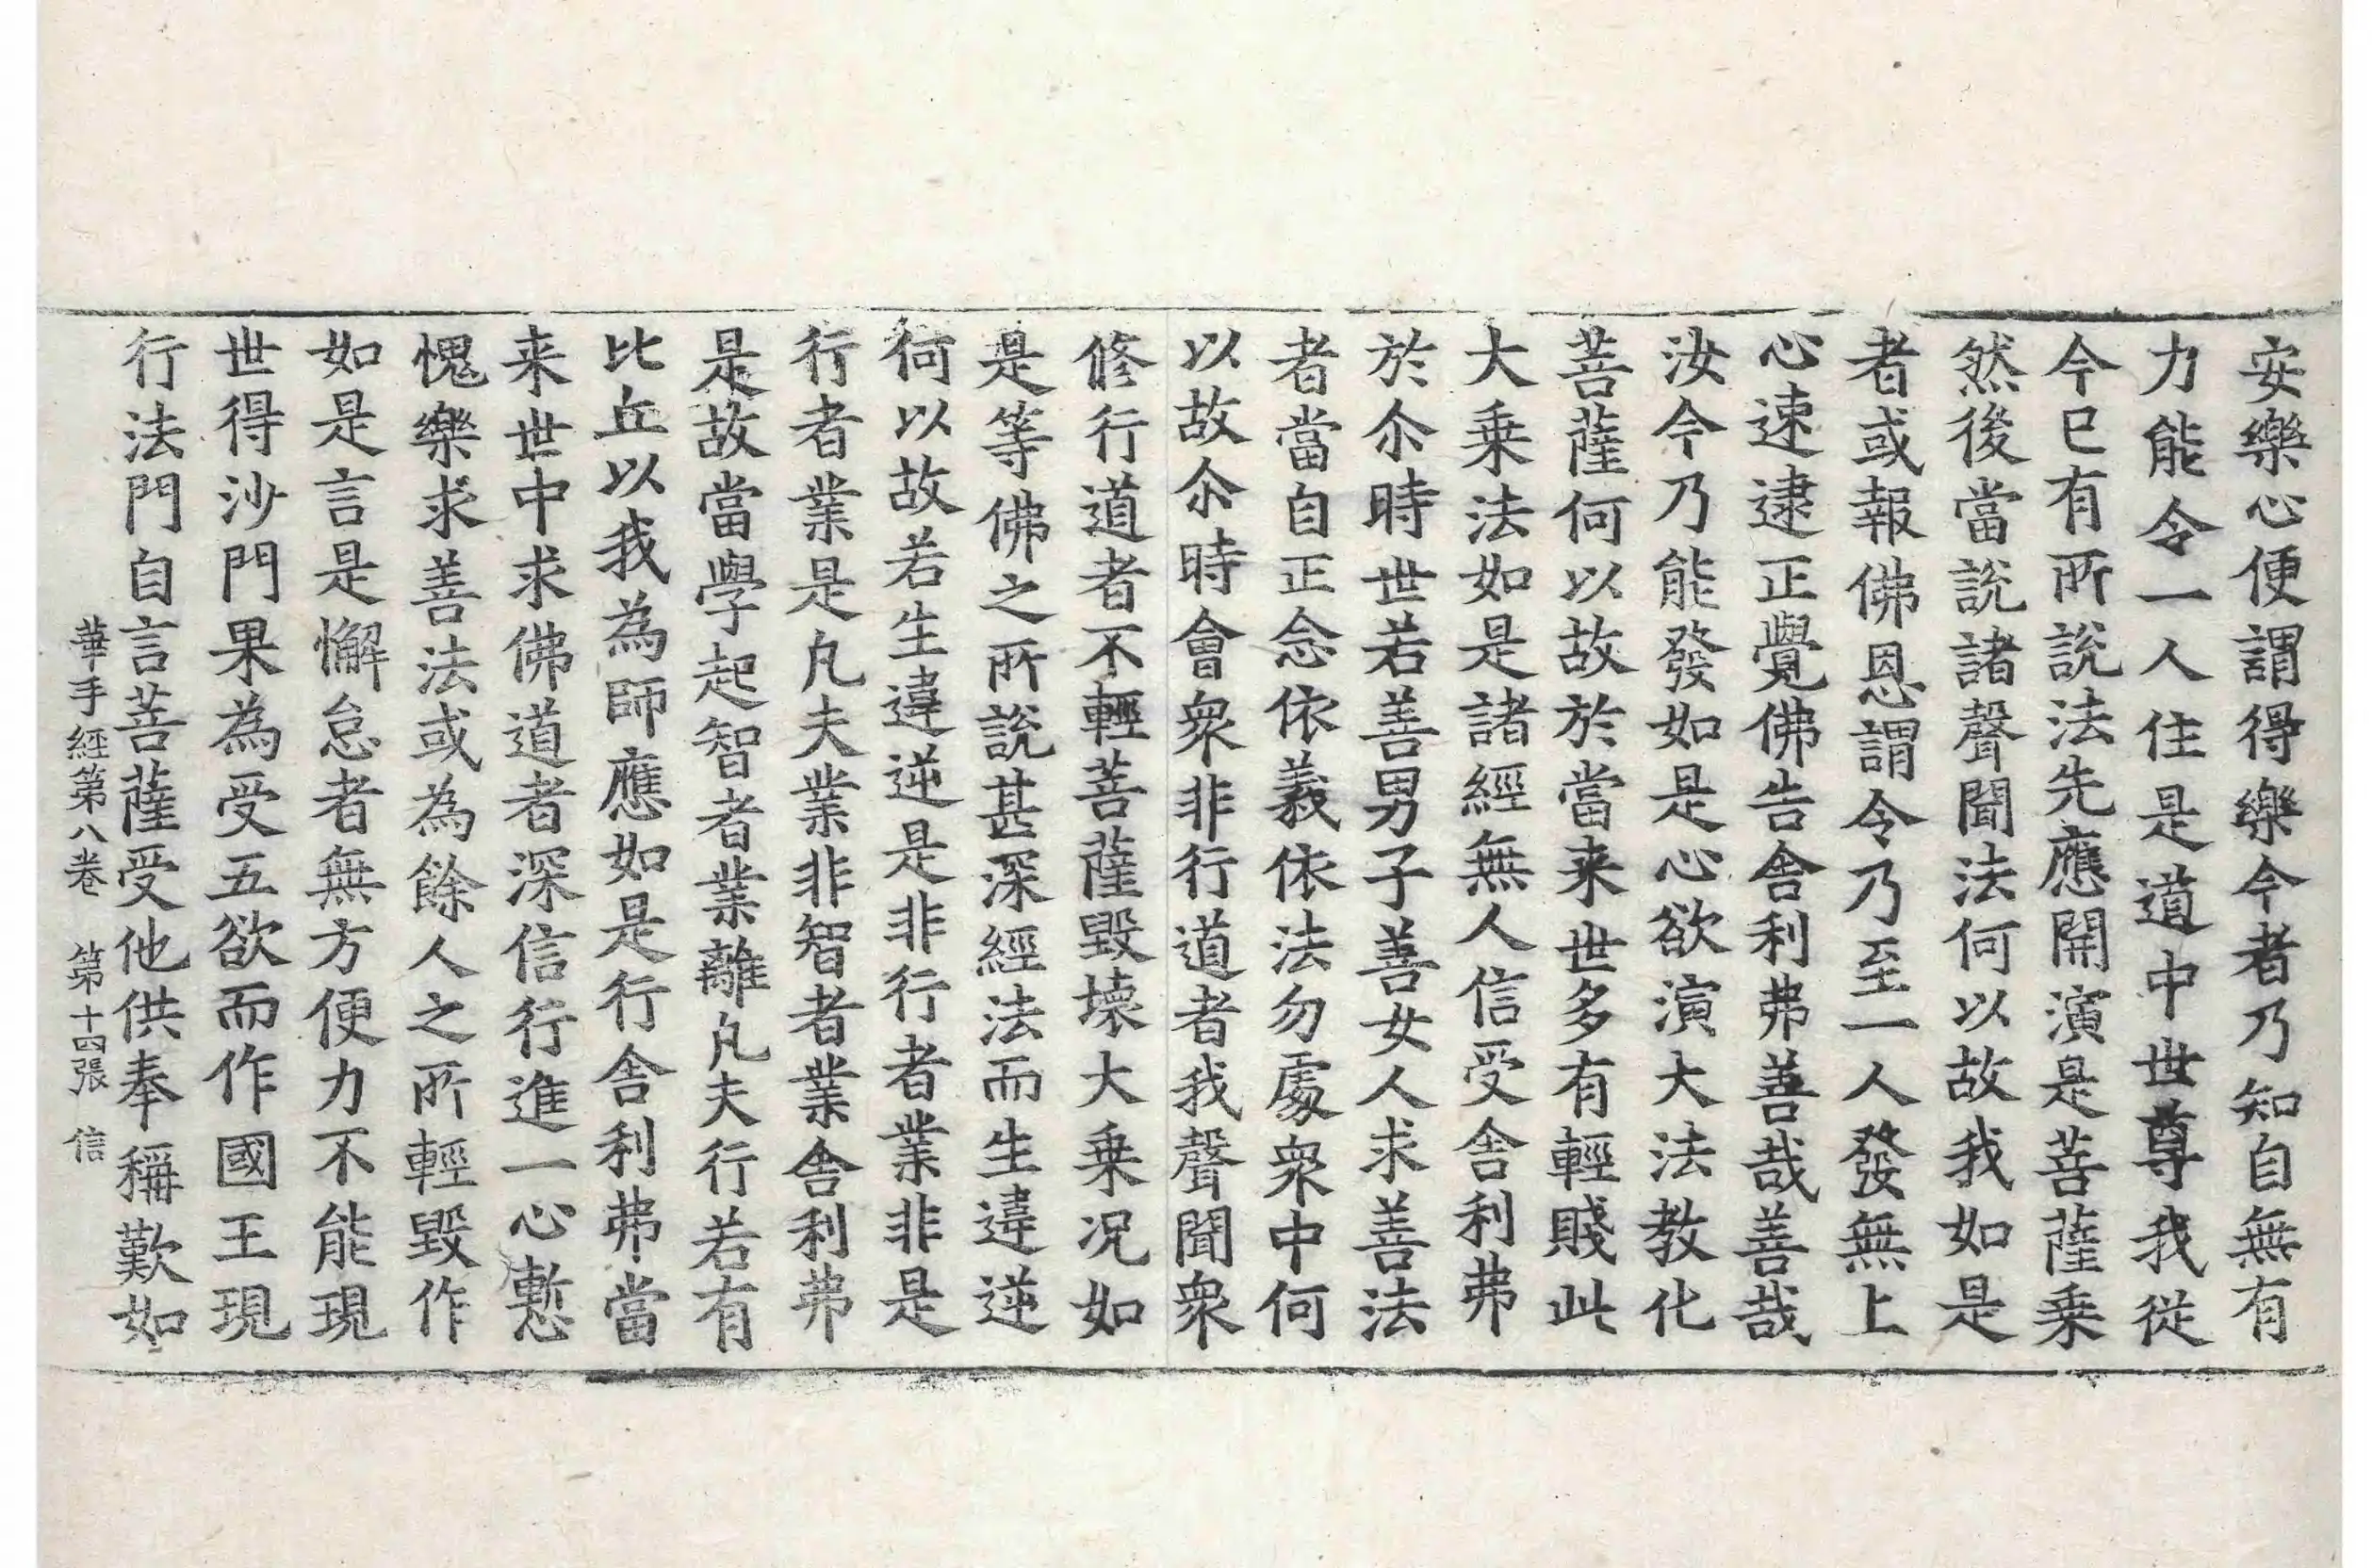 安樂心便謂得樂今者乃知自無有
力能令一人住是道中世尊我從
今已有所說法先應開演是菩薩乗
然後當說諸聲聞法何以故我如是
者或報佛恩謂令乃至一人發無上
心速逮正覺佛告舎利弗善哉善哉
汝今乃能發如是心欲演大法教化
菩薩何以故於當来世多有輕賤此
大乗法如是諸經無人信受舎利弗
於尒時世若善男子善女人求善法
者當自正念依義依法勿處衆中何
以故尒時會衆非行道者我聲聞衆
修行道者不輕菩薩毀壞大乗况如
是等佛之所說甚深經法而生違逆
何以故若生違逆是非行者業非是
行者業是凡夫業非智者業舎利弗
是故當學起智者業離凡夫行若有
比丘以我為師應如是行舎利弗當
来世中求佛道者深信行進一心慙
愧樂求善法或為餘人之所輕毀作
如是言是懈怠者無方便力不能現
世得沙門果為受五欲而作國王現
行法門自言菩薩受他供奉稱歎如
華手經第八卷 第十四張 信